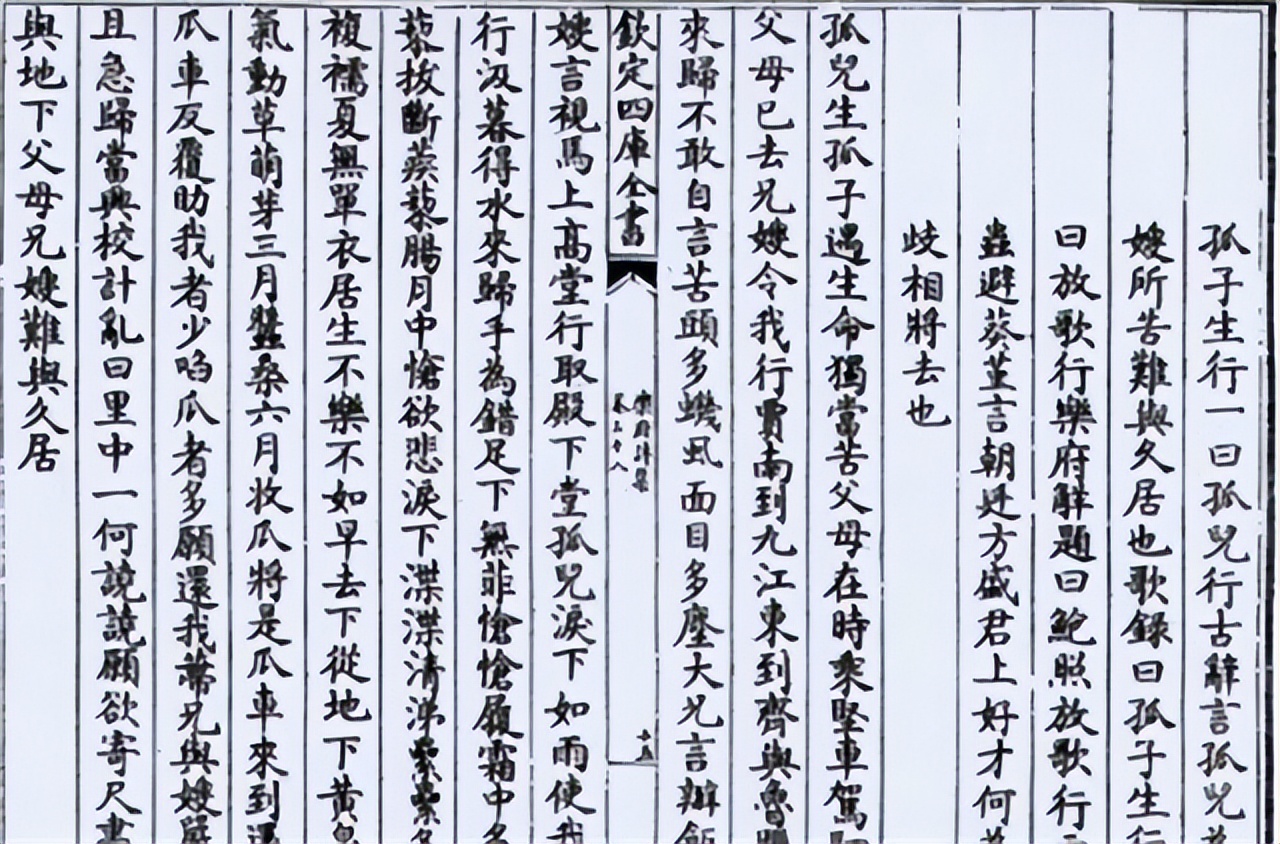 孤子生行一曰孤兒行古辭言孤兒為
嫂所苦難與久居也歌録曰孤子生行
曰放歌行樂府解題曰鮑照放歌行
蟲避葵堇言朝廷方盛君上好才何為
歧相將去也
孤兒生孤子遇生命獨當苦父母在時乘堅車駕
父母已去兄嫂令我行賈南到九江東到齊與魯臘
來歸不敢自言苦頭多蟣虱面目多塵大兄言辦飯
欽定四庫全書
樂府詩集
卷三十八
十五
嫂言視馬上髙堂行取殿下堂孤兒淚下如雨使我
行汲暮得水來歸手為錯足下無菲愴愴履霜中多
蒺藜拔斷蒺藜腸月中愴欲悲淚下渫渫清涕纍纍冬
複襦夏無單衣居生不樂不如早去下從地下黄泉
氣動草萌芽三月蠶桑六月收瓜將是瓜車來到還
瓜車反覆助我者少啗瓜者多願還我蔕兄與嫂嚴
且急歸當興校計亂曰里中一何譊譊願欲寄尺書
與地下父母兄嫂難與久居